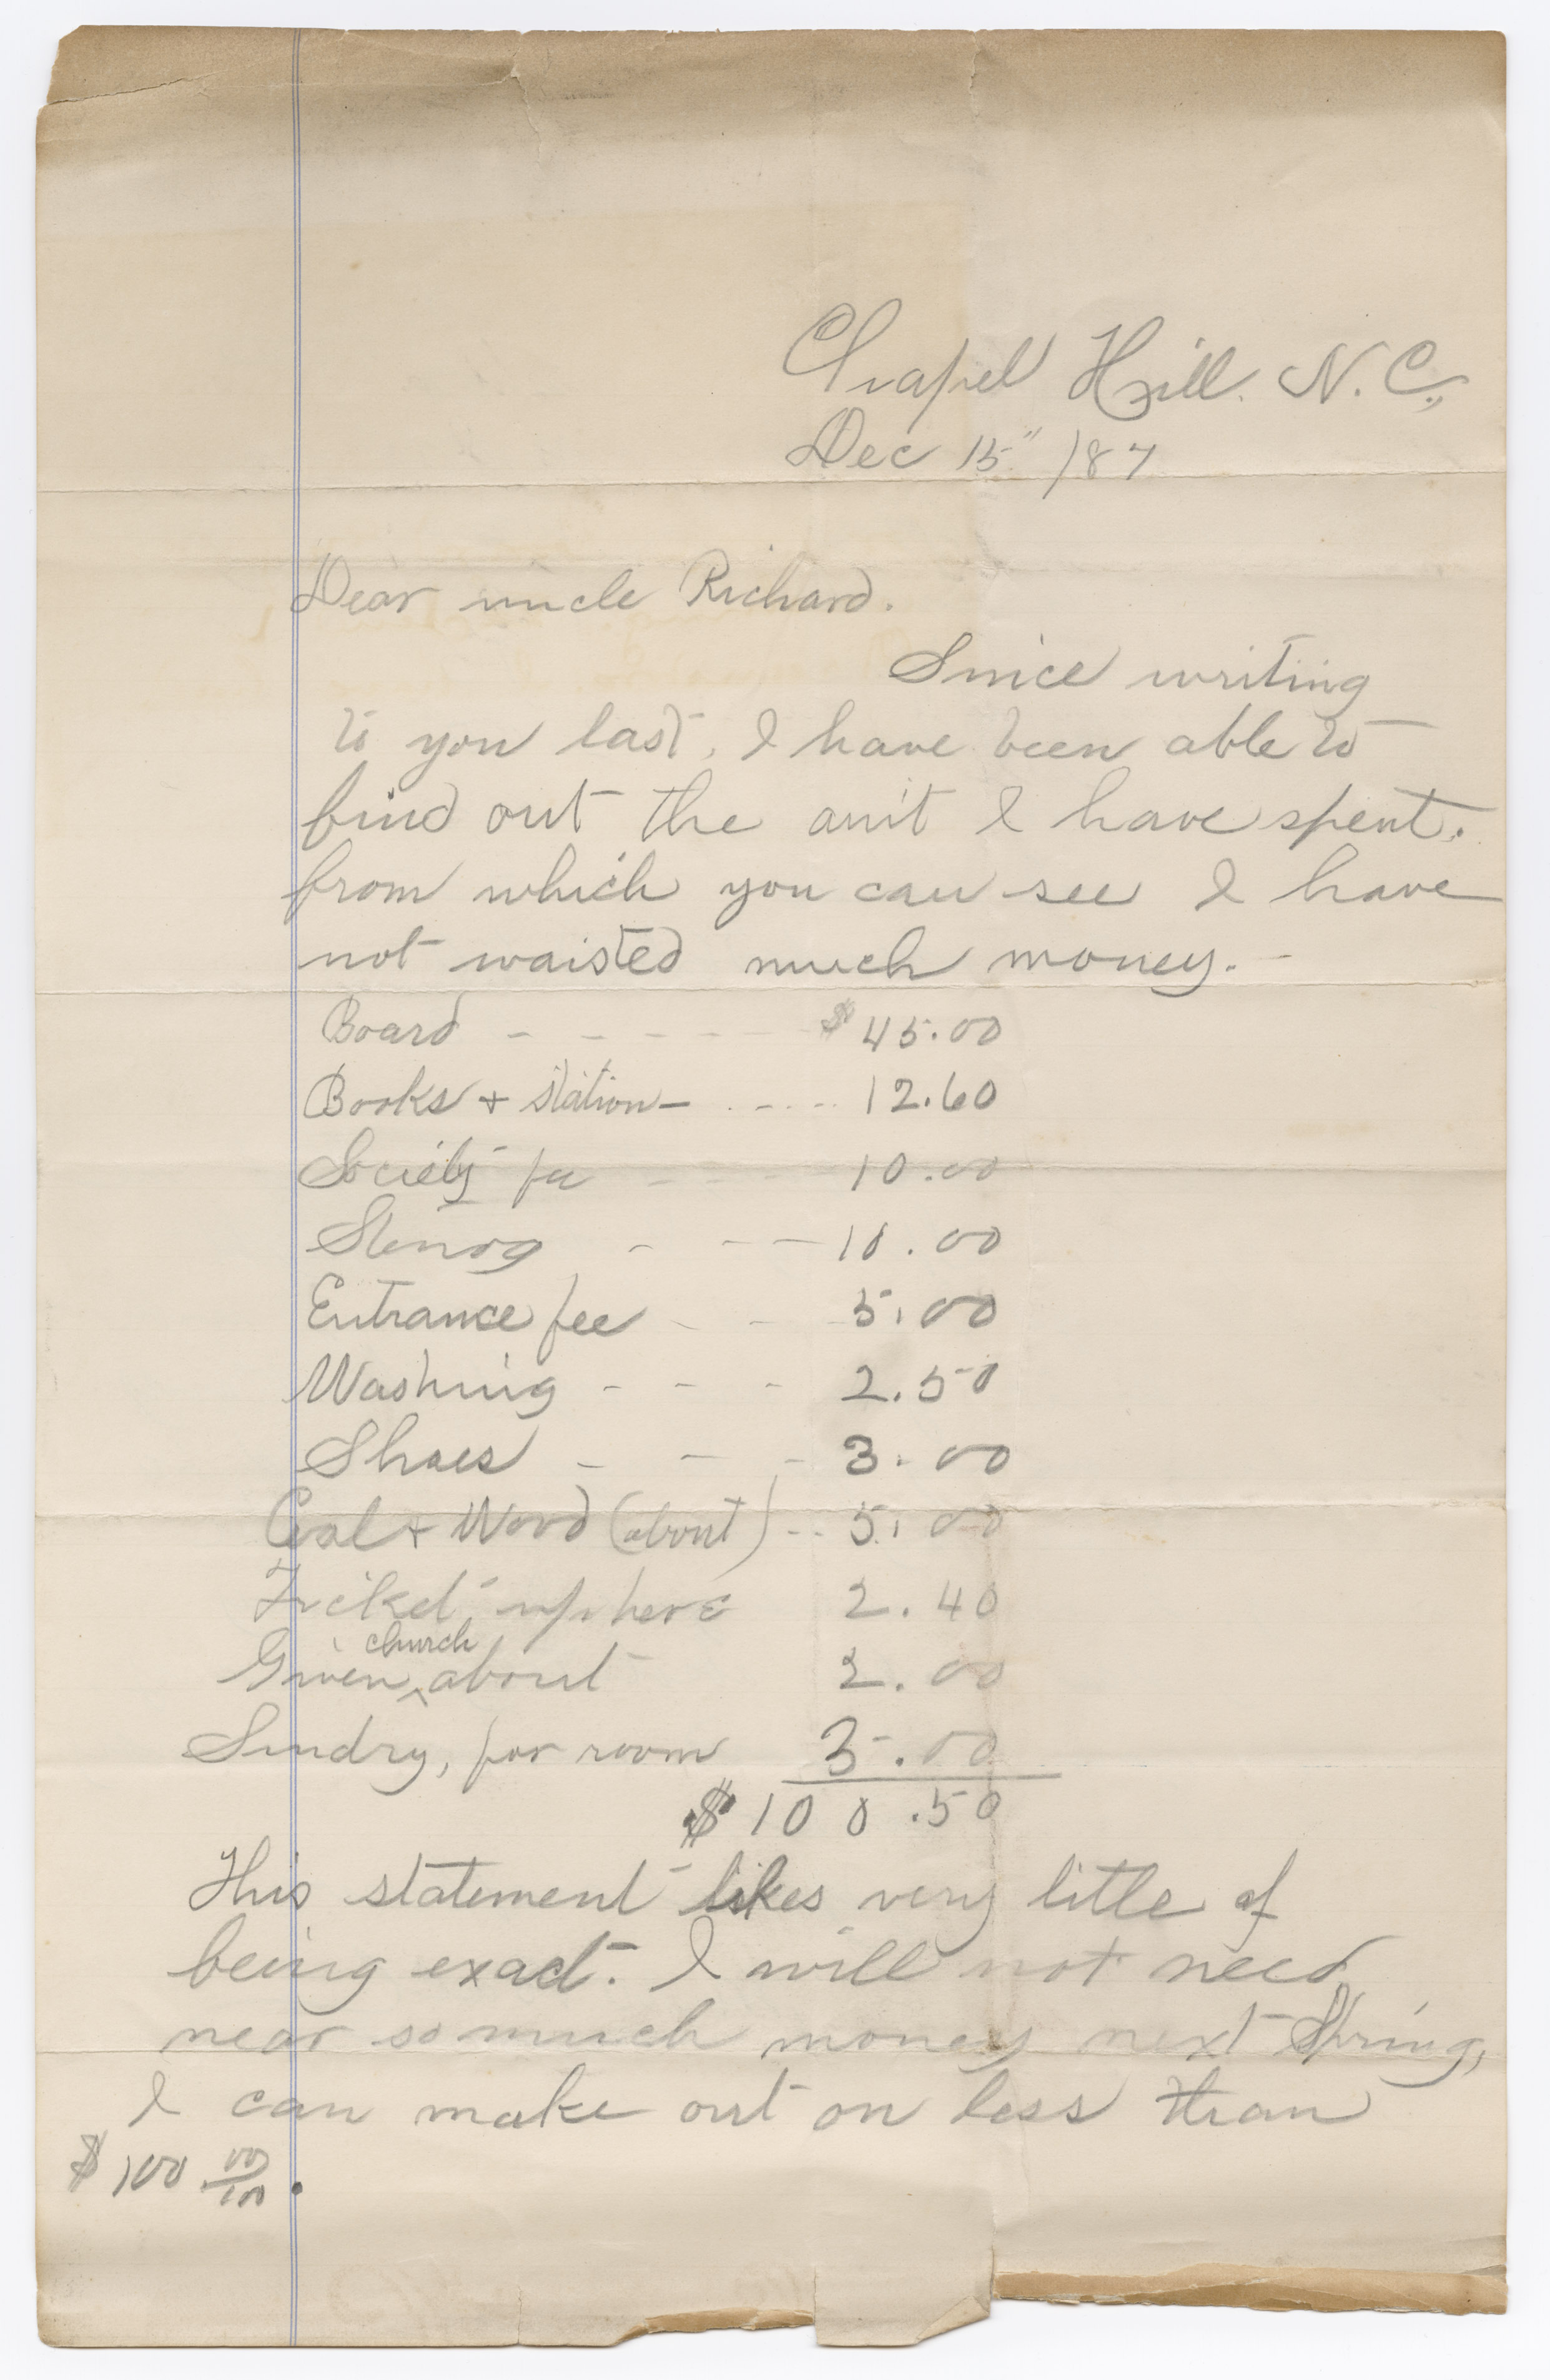 Chapel Hill. N. C.,
Dec 15" /87
Dear uncle Richard.
Since writing
to you last, I have been able to
find out the am't I have spent.
from which you can see I have
not waisted much money. -
Board - - - - - $45.00
Books + station - . - - - 12.60
Society fee - - - 10.00
Stenog - - - 10.00
Entrance fee - - - 5.00
Washing - - - 2.50
Shoes - - - 3.00
Coal + Wood (about) - - 5.00
Ticket up here 2.40
Given church about 2.00
Sundry, for room 3.00
$100.50
This statement likes very little of
being exact. I will not need
near so much money next Spring,
I can make out on less than
$100 00/100.